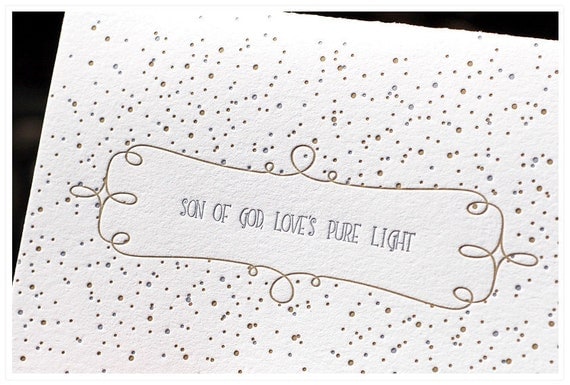 SON OF GOD, LOVE'S PURE LIGHT